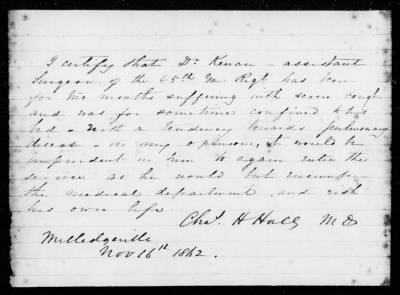 I certify that Dr Kenan - assistant
Surgeon of the 45th Ga. Regt has been
for two months suffering with severe cough
and was for sometime confined to his
bed - with a tendency towards pulmonary
disease - in my opinion, it would be
imprudent in him to again enter the
service as he would but encumber
the medical department and risk
his own life.
Chas. H Hall M D
Milledgeville
Nov 16th 1862.